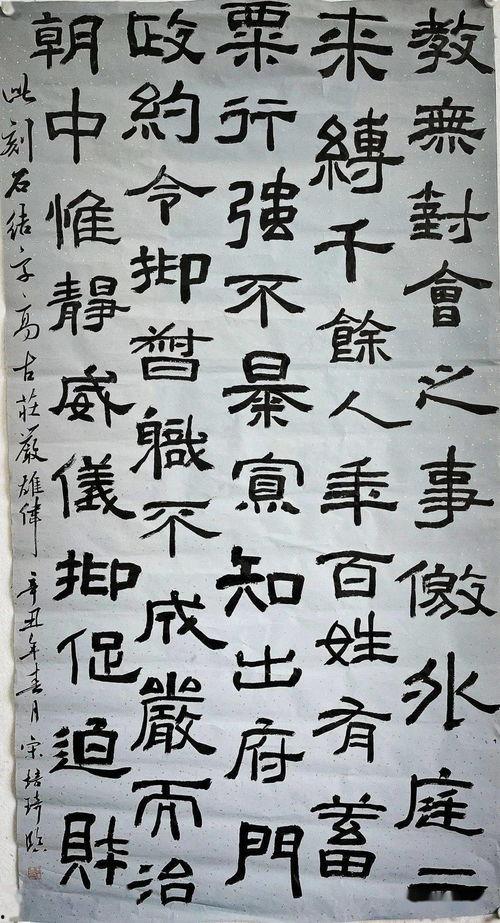 教無對會之事儌外庭
來縛千餘人年百姓有蓄
粟行強不暴寡知出府門
政約令抑督職不成嚴而治
朝中惟靜威儀抑促迫財
此刻石結字高古莊嚴雄偉 辛丑年春月 宋培琦臨